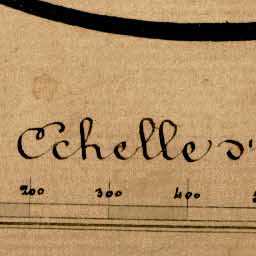 Echelle d'
200 300 400